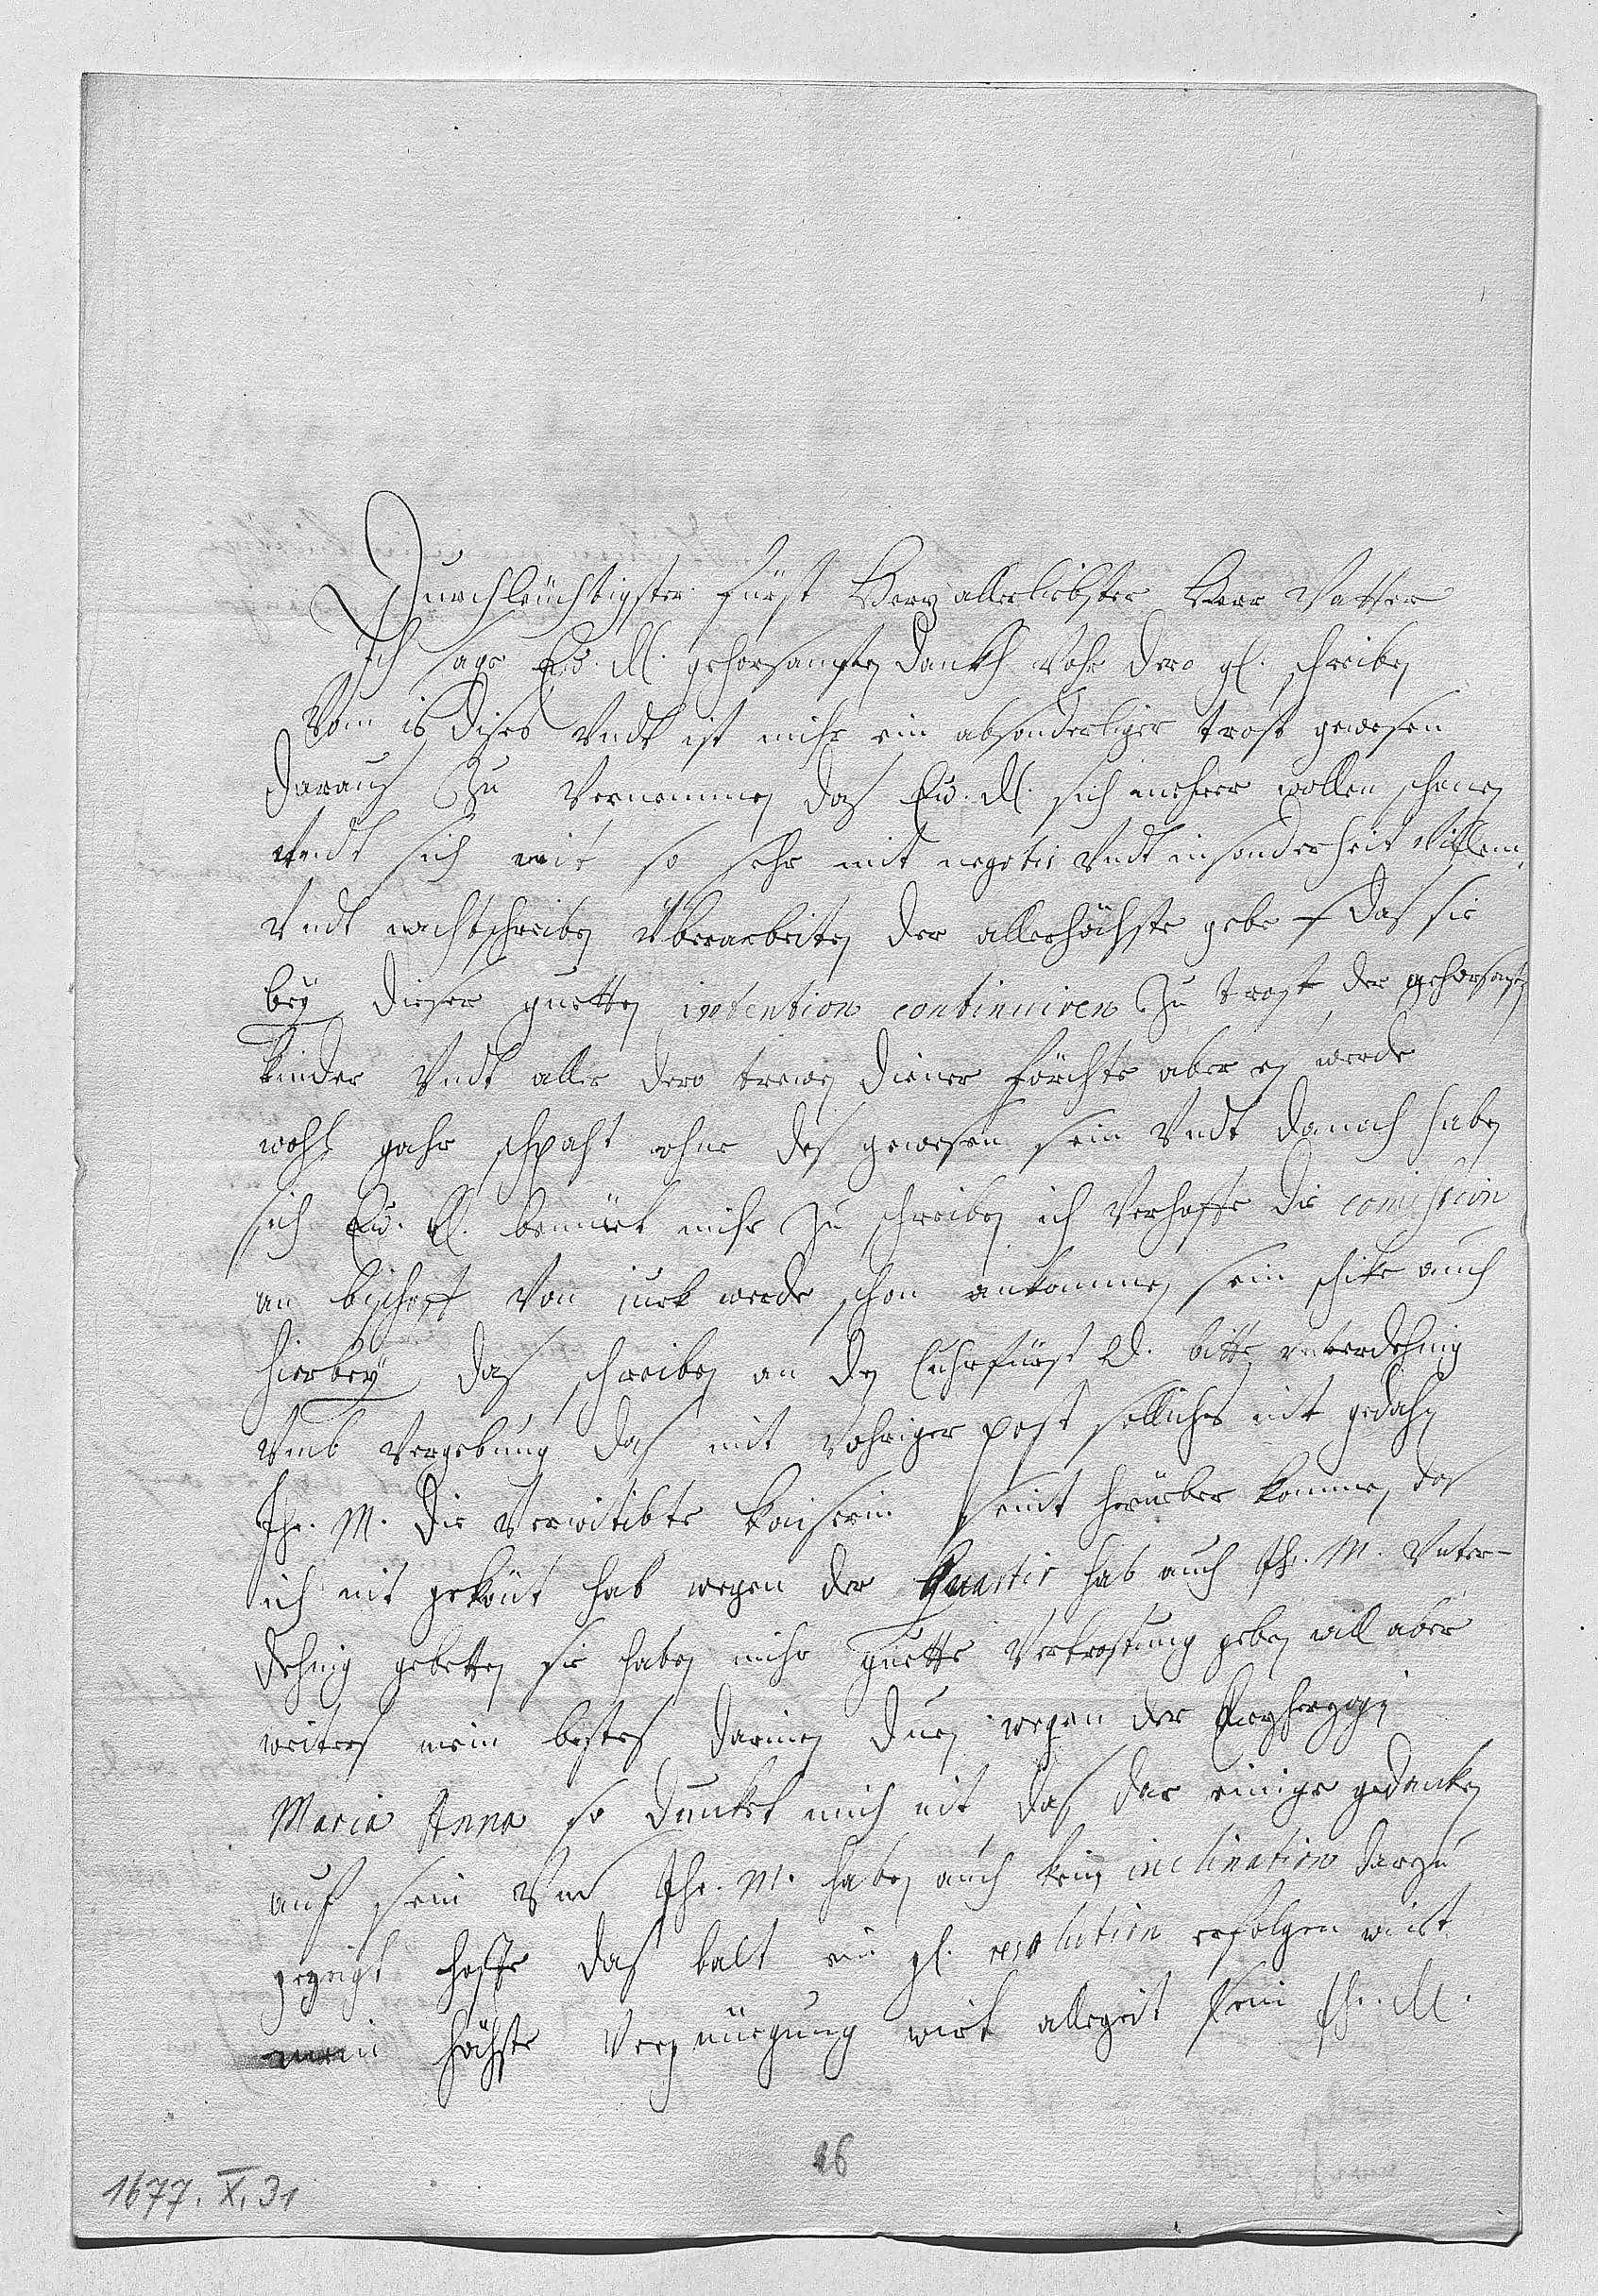 Durchleüchtigster Fürst Herz allerliebster Herr Vatter
Ich sage Ew. Dl. gehorsamsten Dankh vohr dero gl. schreiben
vom 16 dises undt ist mihr ein absonderliger trost gewesen
daraus zu vernemmen das Ew. Dl. sich mehrer wollen schonen
undt sich nit so sehr mit negotis undt insonderheit
undt nachtschreiben überarbeiten der allerhöchste gebe das sie
bey dieser guetten intention continuiren zu trost der gehorsamsten
kinder undt aller dero trewen diener förchte aber es werde
wohl gahr spaht ohne des gewesen sein undt danoch haben
sich Ew. Dl. bemüet mihr zu schreiben ich verhoffe die comission
an bischoff von werde schon ankommen sein schike auch
hierbey das schreiben an den Cuhrfürst D. bitte unterdehnig
umb vergebung das mit vohriger post solliches nit gedahn
Ihr. M. die verwitibte Kaiserin seint herüeber kommen das
ich nit gekönt hab wegen der quartir hab auch Ihr. M. unter-
dehnig gebetten sie haben mihr guette vertrostung geben will aber
weiters mein bestes darinen duen wegen der Erzherzogin
Maria Anna so dunket mich nit das dar einige gedanken
auf sein und Ihr. M. haben auch kein inclination darzu
gezeigt hoffe das balt ein gl. resolution erfolgen wirt
mein höchste vergnüegung wirt allezeit sein Ihr. M.
16
1677. X. 31